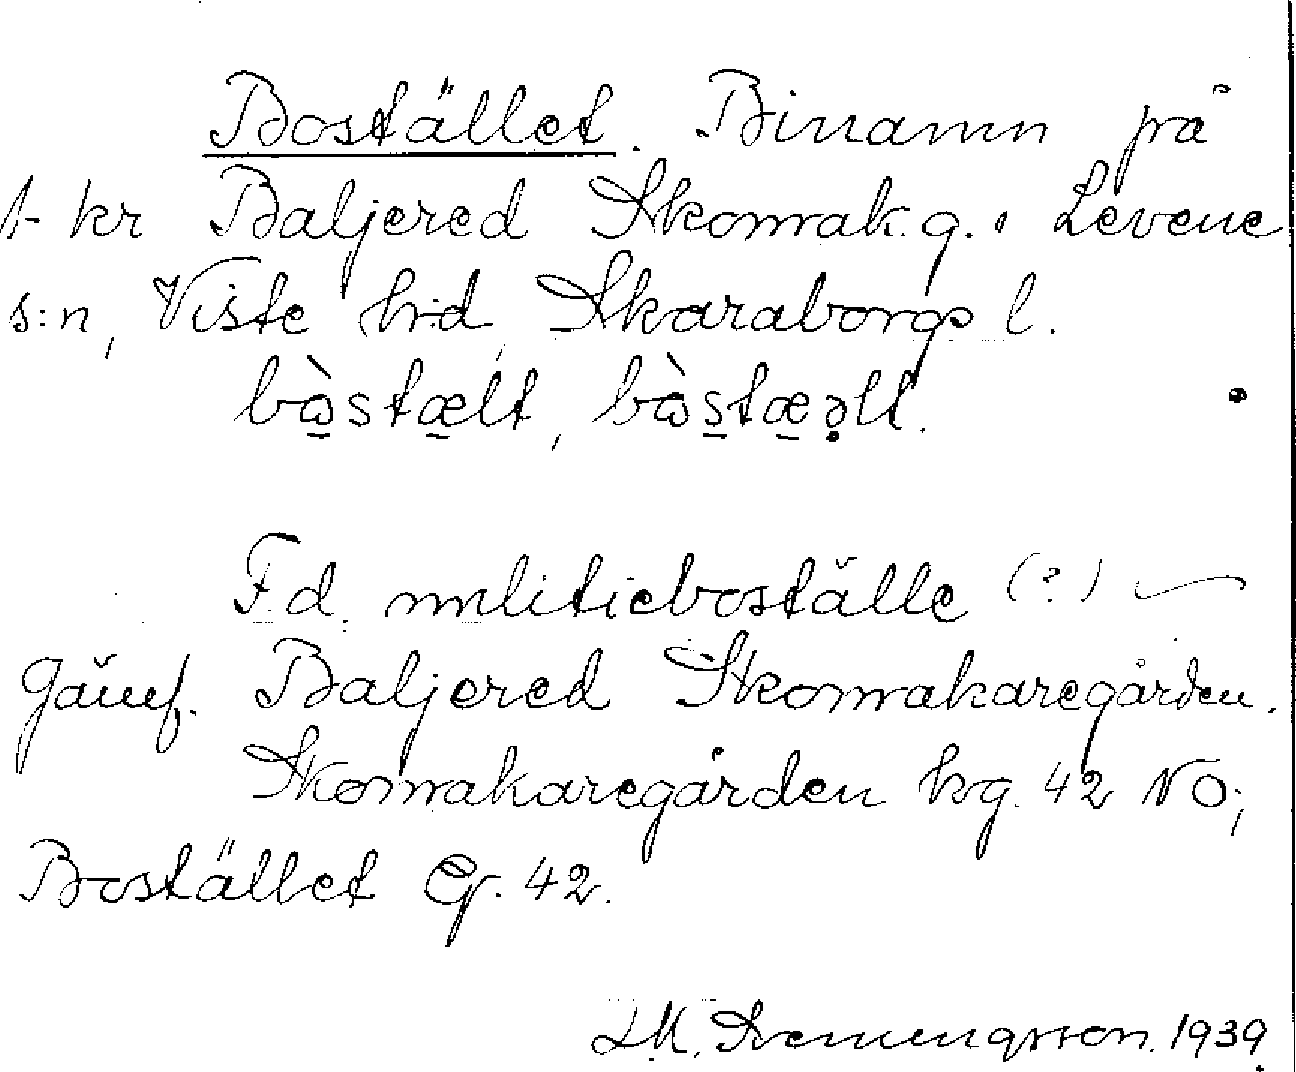 Bostället. Binamn på
1- kr Baljered Skomak.g. i Levene
s:n, Viste hd, Skaraborgs l.
bɷ̀stælt, bɷ̀stæəlt.
F.d. militieboställe (?) —
Jämf. Baljered Skomakaregården.
Skomakaregården hg. 42 NO;
Bostället Gr. 42.
1939